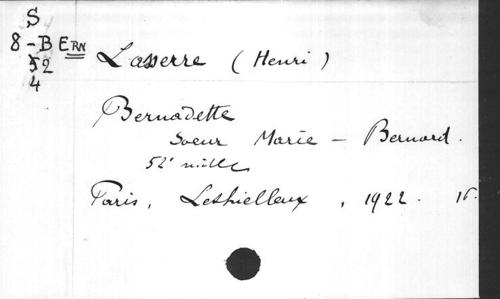 S
8-BERN
52
4
Lasserre (Henri)
Bernadette
Soeur Marie - Bernard.
52e mille
Paris, Lethielleux, 1922. 16.